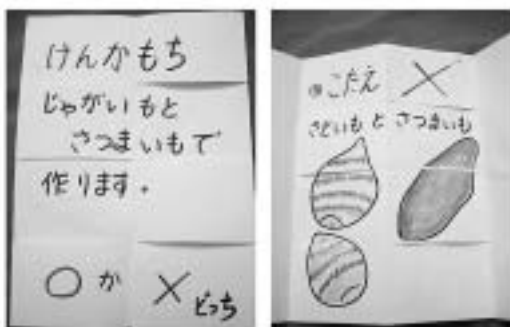 けんかもち
じゃがいもと
さつまいもで
作ります。
○か ×どっち
•こたえ ×
さといもとさつまいも